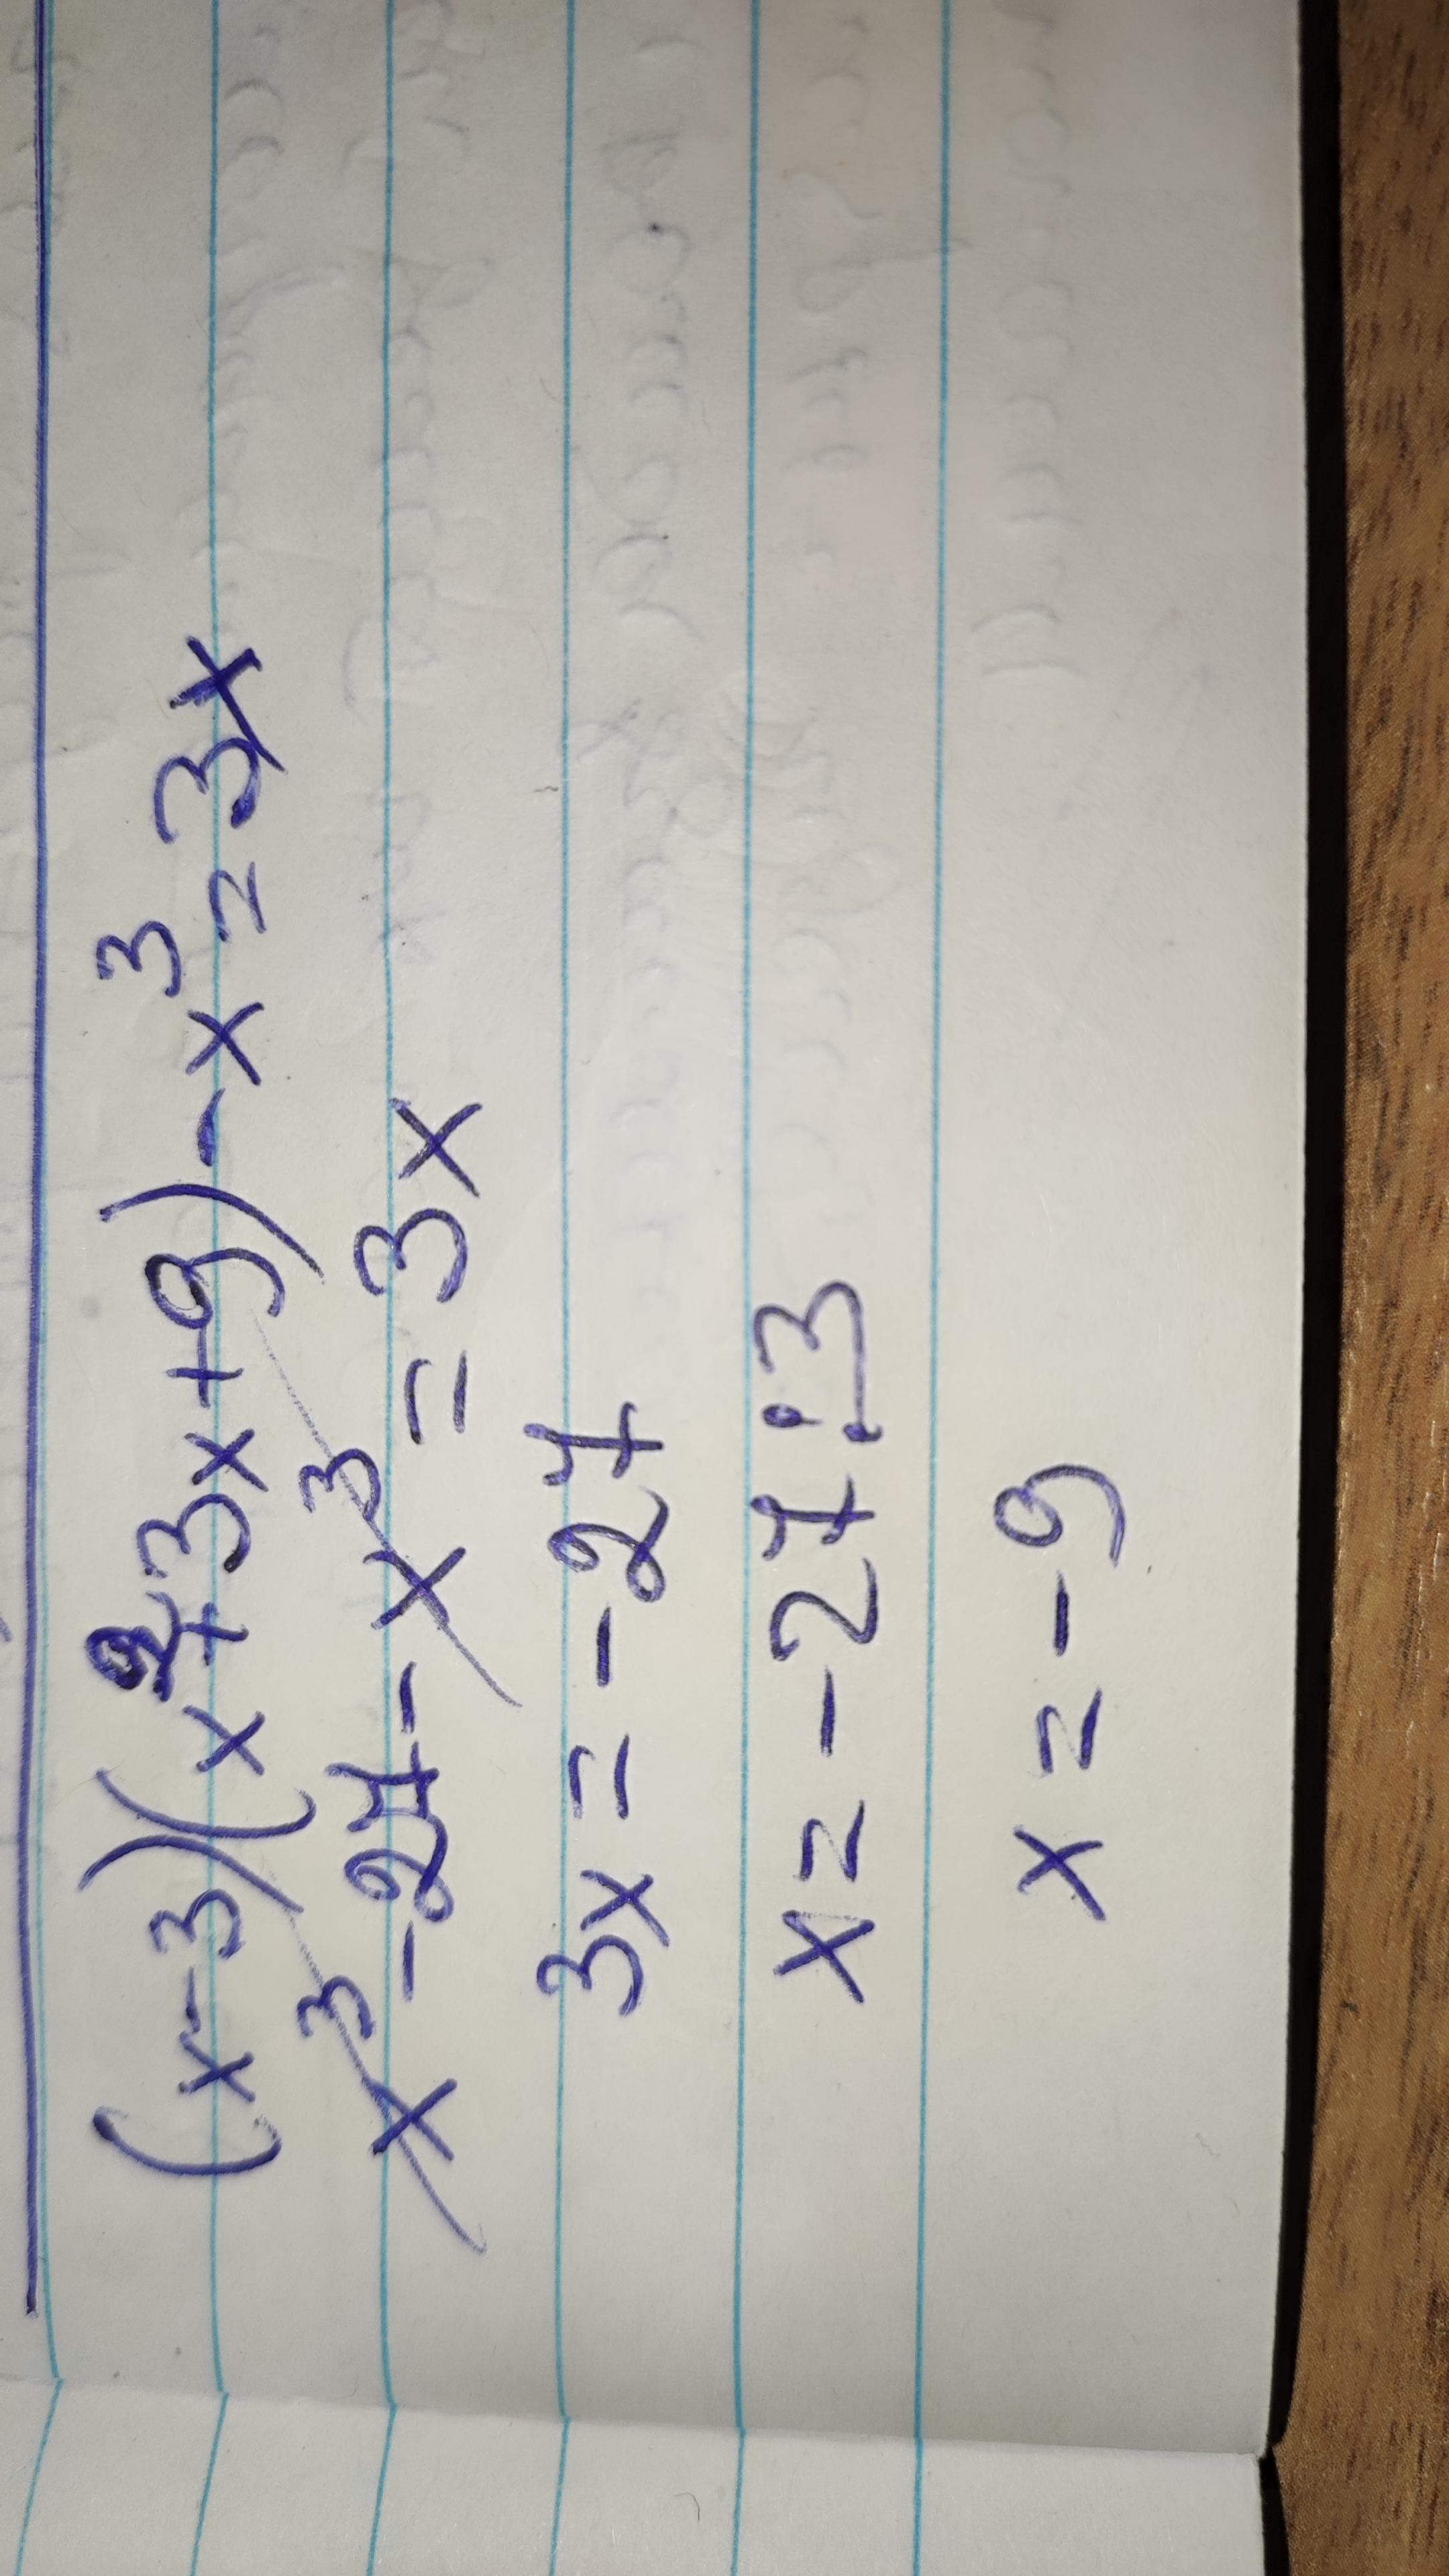 (x-3)(x²+3x+9)-x³=3x
x³-27-x³=3x
3x=-27
x=-27:3
x=-9